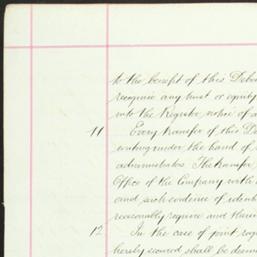 to the benefit of this Debe
recognise any trust or equity
into the Register notice of a
11 Every transfer of this De
writing under the hand of
administrators. The transfer
Office of the Company with
and such evidence of identi
reasonably require and there
12 In the case of joint reg
hereby secured shall be deem